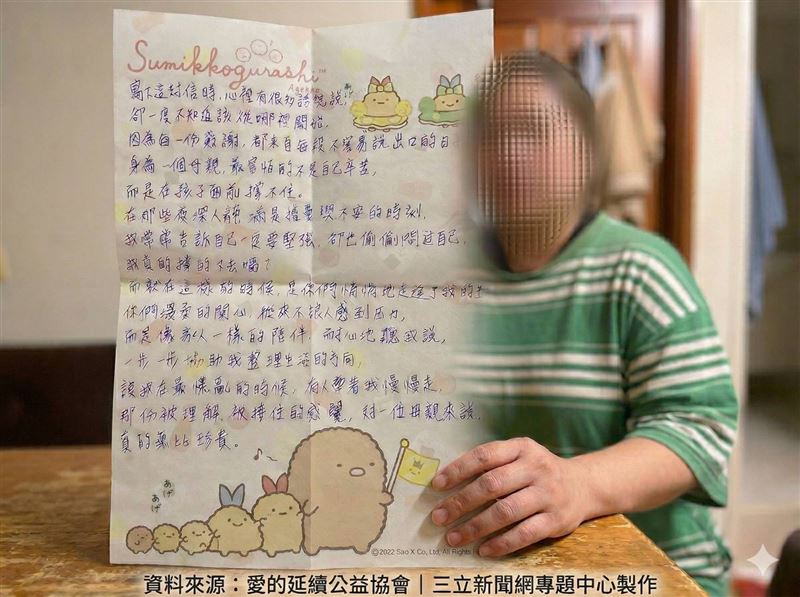 Sumikkogurashi™
Agekko
寫下這封信時，心裡有很多話想說，
卻一度不知道該從哪裡開始，
因為每一份感謝，都來自每段不容易說出口的日
身為一個母親，最害怕的不是自己辛苦，
而是在孩子面前撐不住。
在那些夜深人靜 滿是擔憂與不安的時刻，
我常常告訴自己一定要堅強，卻也偷偷問過自己，
我真的撐的下去嗎？
而就在這樣的時候，是你們悄悄地走進了我的生
你們溫柔的關心，從來不讓人感到壓力，
而是像家人一樣的陪伴，耐心地聽我說，
一步一步協助我整理生活的方向，
讓我在最慌亂的時候，有人帶著我慢慢走，
那份被理解、被接住的感覺，對一位母親來說，
真的無比珍貴。
あげ
あげ
あげ
©2022 San-X Co., Ltd. All Rights
資料來源：愛的延續公益協會｜三立新聞網專題中心製作